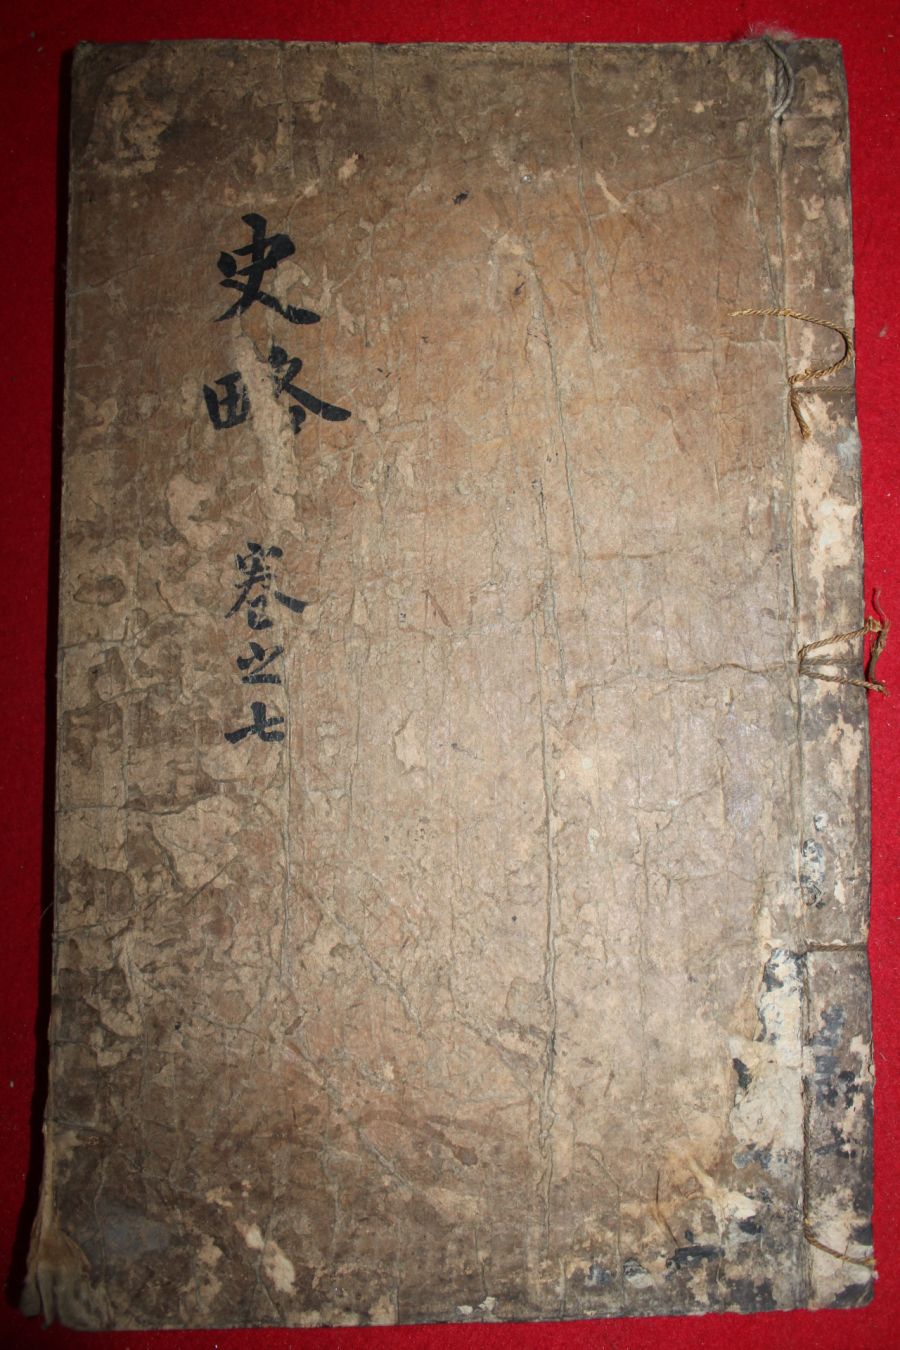 史略 卷之七